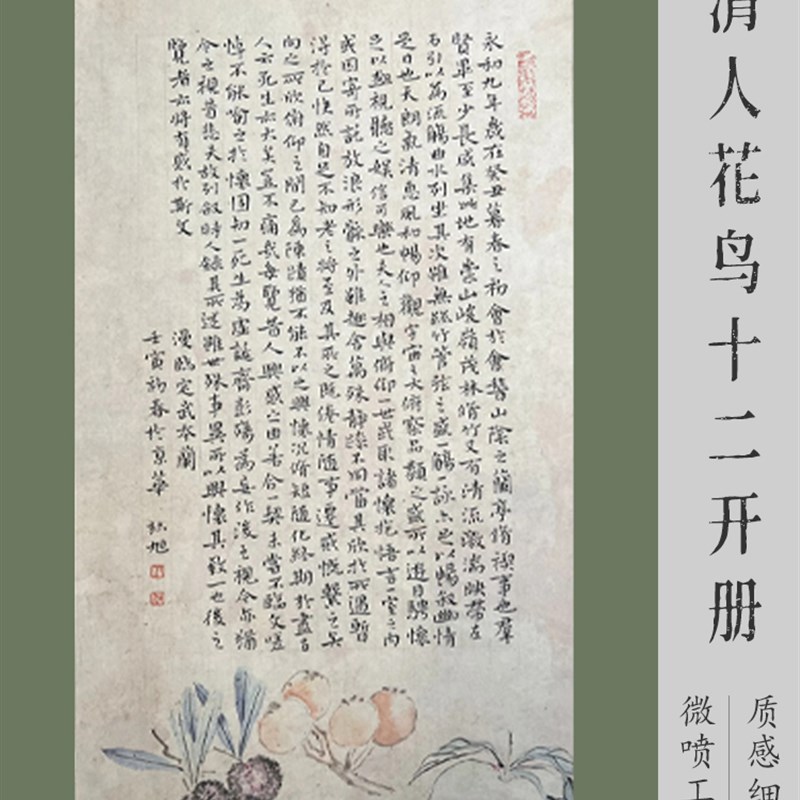 清人花鸟十二开册
质感细
微喷工
永和九年歲在癸丑暮春之初會於會稽山陰之蘭亭脩禊事也羣
賢畢至少長咸集此地有崇山峻嶺茂林脩竹又有清流激湍映帶左
右引以為流觴曲水列坐其次雖無絲竹管弦之盛一觴一詠亦足以暢叙幽情
是日也天朗氣清惠風和暢仰觀宇宙之大俯察品類之盛所以遊目騁懷
足以極視聽之娛信可樂也夫人之相與俯仰一世或取諸懷抱悟言一室之內
或因寄所託放浪形骸之外雖趣舍萬殊靜躁不同當其欣於所遇暫
得於己快然自足不知老之將至及其所之既倦情隨事遷感慨繫之矣
向之所欣俛仰之間已為陳蹟猶不能不以之興懷況脩短隨化終期於盡古
人云死生亦大矣豈不痛哉每覽昔人興感之由若合一契未嘗不臨文嗟
悼不能喻之於懷固知一死生為虛誕齊彭殤為妄作後之視今亦猶
今之視昔悲夫故列叙時人錄其所述雖世殊事異所以興懷其致一也後之
覽者亦將有感於斯文
漫臨定武本蘭
壬寅初春於京華 秋旭